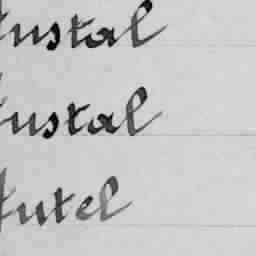 ustal
ustal
utel